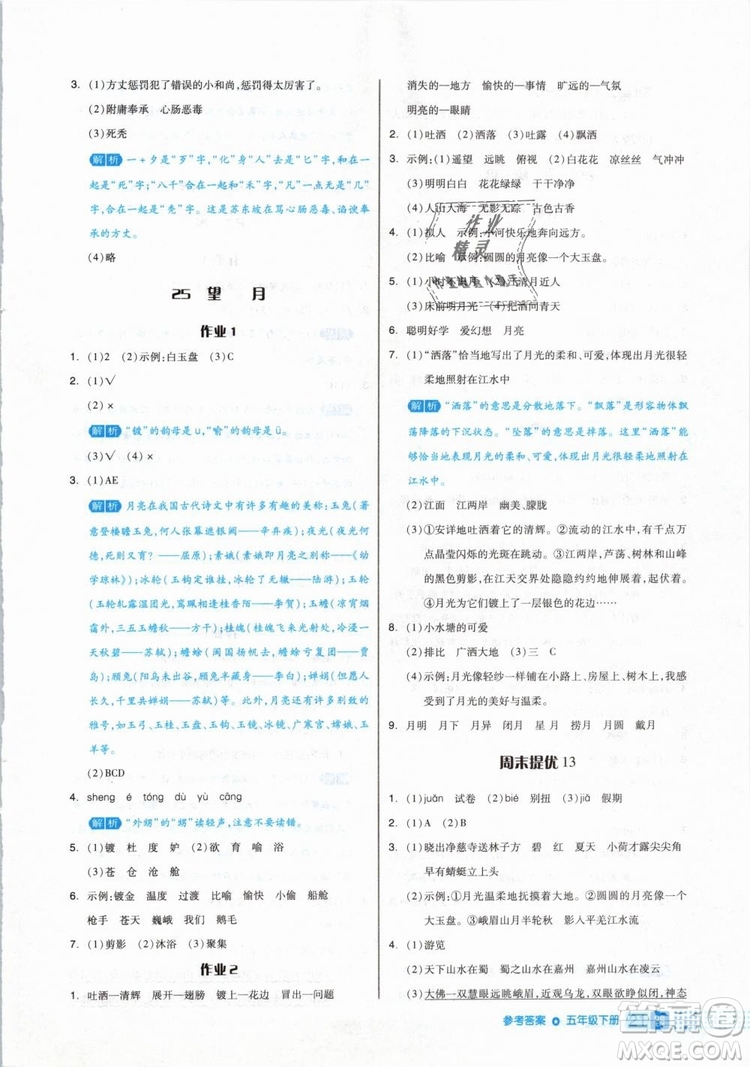 3. (1)方丈惩罚犯了错误的小和尚,惩罚得太厉害了。
(2)附庸奉承　心肠恶毒
(3)死秃
解析 一+夕是“歹”字,“化”身“人”去是匕字,合在一
起是“死”字;“八千”合在个“禾”,“凡”一点无是“几”字,
合在一起是“秃”字。这是苏东坡在骂心肠恶毒、谄谀奉
承的方丈。
(4)略
25　望　月
作业1
1. (1)2　(2)示例:白玉盘　(3)C
2. (1)√
(2)×
解析 “镀”的韵母是u,“喻”的韵母是ü。
(3)√　(4)×
3. (1)AE
解析 月亮在我国古代诗文中有许多有趣的美称:玉兔(著
意登楼瞻玉兔,何人张幕遮银阙——辛弃疾);夜光(夜光何
德,死则又育?——屈原);素娥(素娥即月亮之别号——《幼
学琼林》);冰轮(玉钩定谁挂,冰轮了无辙——陆游);玉轮
(玉轮轧露湿团光,鸾佩相逢桂香陌——李贺);玉蟾(凉霄烟
霭外,三五玉蟾秋——方干);桂魄(桂魄飞来光射处,冷浸一
天秋碧——苏轼);蟾蜍(闽国扬帆去,蟾蜍亏复团——贾
岛);顾兔(阳乌未出谷,顾兔半藏身——李白);婵娟(但愿人
长久,千里共婵娟——苏轼)。月亮还有许多有趣而美丽的
雅号,如玉弓、玉桂、玉盘、玉钩、玉镜、广寒宫、嫦娥、玉
羊等。
(2)BCD
4. sheng　é　tóng　dù　yù　cāng
解析 “外甥”的“甥”读轻声,请注意不要读错。
5. (1)镀　杜　度　妒　(2)欲　育　喻　浴
(3)苍　仓　沧　舱
6. 示例:镀金　温度　过渡　比喻　愉快　小偷　船舱
枪手　苍天　巍峨　我们　鹅毛
7. (1)剪影　(2)沐浴　(3)聚集
作业2
1. 吐洒—清辉　展开—翅膀　镀上—花边　冒出—问题
消失的—地方　愉快的—事情　旷远的—气氛
明亮的—眼睛
2. (1)吐洒　(2)洒落　(3)吐露　(4)飘洒
3. 示例:(1)遥望　远眺　俯视　(2)白花花　凉丝丝　气冲冲
(3)明明白白　花花绿绿　干干净净
(4)人山人海　无影无踪　古色古香
4. (1)拟人　示例:小河快乐地奔向远方。
(2)比喻　示例:圆圆的月亮是个大玉盘。
5. (1)小时不识月　(2)江清月近人
(3)床前明月光　(4)把酒问青天
6. 聪明好学　爱幻想　月亮
7. (1)“洒落”恰当地写出了月光的柔和、可爱,体现出月光轻
柔地照射在江水中
解析 “洒落”的意思是分散地落下。“飘落”是形容物体飘
荡降落的下沉状态。“坠落”的意思是掉落。“洒落”最能
体现出月光的柔和、可爱,恰当地表现出月光轻柔地照射在
江水中。
(2)江面　江两岸　幽美、朦胧
(3)①安详地吐洒着它的清辉。②流动的江水中,千点万
点晶莹闪烁的光斑在跳动。③江两岸,芦荡、树林和山峰
的黑色剪影,在江天交界处隐隐约约地伸展着,起伏着。
④月光为它们镀上了一层银色的花边……
8. (1)小水塘的可爱
(2)比喻　(3)广洒大地　(3)三　C
(4)示例:月光像轻纱一样铺在小路上、房屋上、树木上,我
感受到了月光的美好与温柔。
9. 月明　月下　月异　闭月　星月　捞月　月圆　戴月
周末提优13
1. (1)juǎn　试卷　(2)bié　别扭　(3)jiǎ　假期
2. (1)A　(2)B
3. (1)晓出净慈寺送林子方　碧　红　小荷才露尖尖角
早有蜻蜓立上头
(2)示例:①月光温柔地抚摸着大地。②圆圆的月亮像个
大玉盘。　(3)①峨眉山月半轮秋　影入平羌江水流
4. (1)游览
(2)天下山水在蜀　蜀之山水在嘉州　嘉州山水在凌云
(3)大佛—双慧眼远眺峨眉,俯瞰三江,栩栩如生,神态
参考答案　五年级下册
作业
精灵